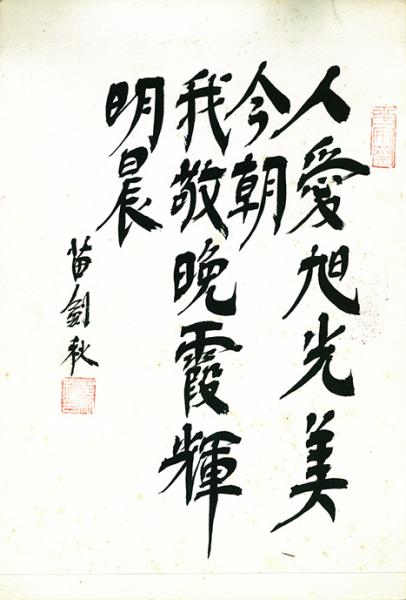 人愛旭光美
今朝
我敬晚霞輝
明晨
苗劍秋